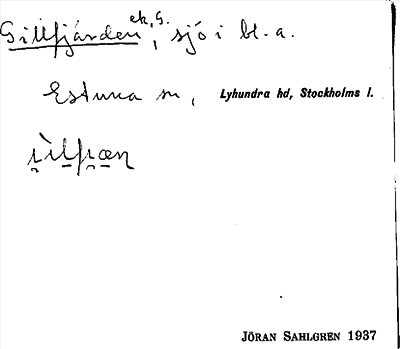 Gillfjärden ek. G., sjö i bl. a.
Estuna sn, Lyhundra hd, Stockholms l.
JÖRAN SAHLGREN 1937